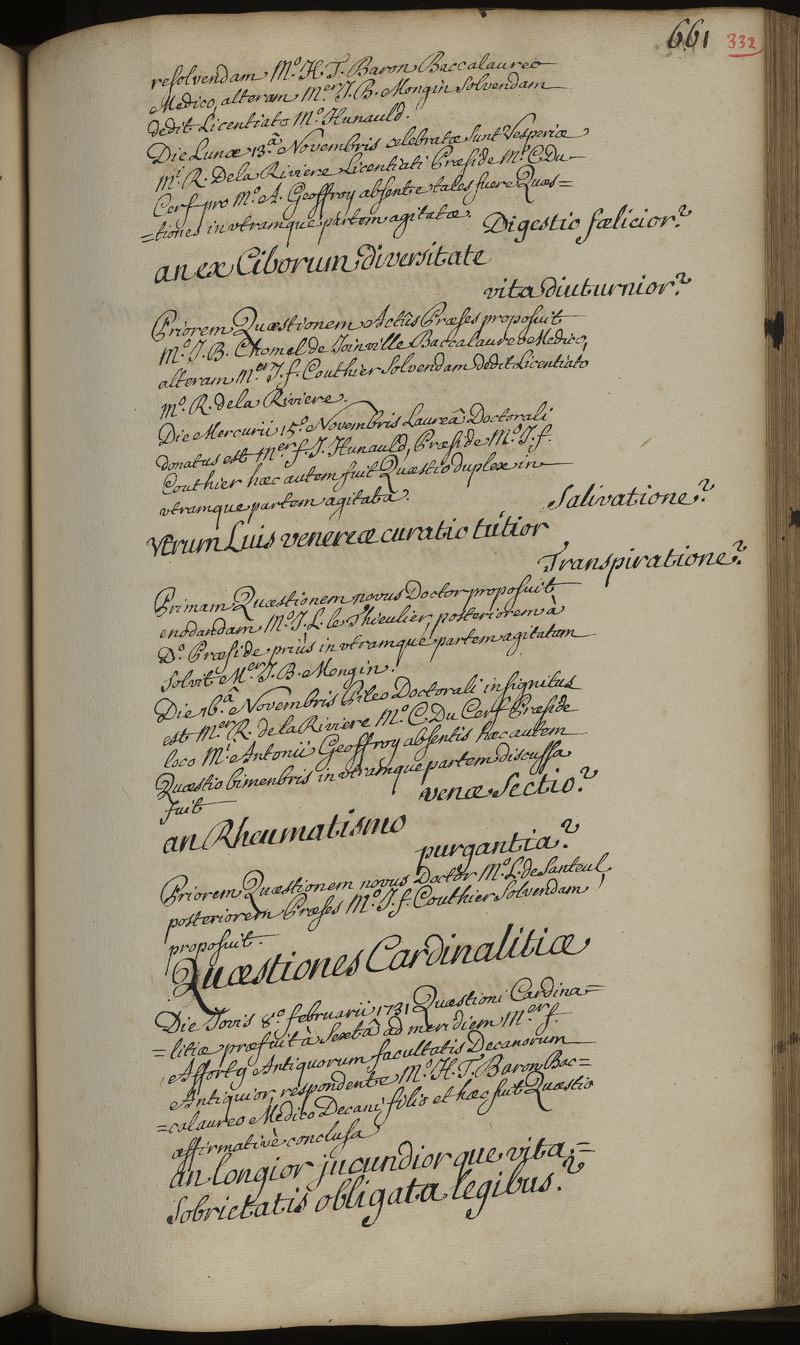 661 332
resolvendam M.o H. T. Baron Baccalaureo
Medico, alteram M.er J. B. Mongin Solvendam
dedit Licentiato M.o Hunauld.
Die Lunæ 13.a Novembris celebratæ sunt Vesperiæ
M.i R. De la Riviere Licentiati Præside M.o C. Du
Cerf pro M.o A. Geoffroy absente tales fuere Quæs=
=tiones in utramque partem agitatæ.
Digestio fælicior?
an ex Ciborum diversitate
vita diuturnior?
Priorem Quæstionem Actûs Præses proposuit
M.o J. B. Chomel de Joinville Baccalaureo Medico,
alteram M.er J. f. Couthier Solvendam dedit Licentiato
M.o R. de la Riviere.
Die Mercurii 15.o Novembris Laureâ Doctorali
donatus est M.er f. J. Hunauld, Præside M.o J. f.
Couthier hæc autem fuit Quæstio duplex in
vtramque partem agitata.
Salivatione?
Vtrum Luis venereæ curatio tutior
Transpiratione?
Primam Quæstionem novus Doctor proposuit
enodandam M.o J. L. le Thieulier, posteriorem à
D.o Præside priùs in vtramque partem agitatam
Solvit M.er J. B. Mongin.
Die 16.a Novembris Pileo Doctorali insignitus
est M.er R. de la Riviere M.o C. Du Cerf Præside
loco M.i Antonii Geoffroy absentis hæc autem
Quæstio bimenbris in vtramque partem discussa
fuit
venæ Sectio?
an Rheumatismo
purgantia?
Priorem Quæstionem novus Doctor M.o L. de Santeul,
posteriorem Præses M.o J. f. Couthier Solvendam
proposuit.
Quæstiones Cardinalitiæ
Die Jovis 8.o februarii 1731 Quæstioni Cardina=
=litiæ præfuit à Sextâ ad meridiem M.er f.
Afforty Antiquorum facultatis Decanorum
Antiquior, respondente M.o H. T. Baron Bac=
=calaureo Medico Decani filio et hæc fuit Quæstio
affirmativè conclusa
an longior jucundior que vita,=
Sobrietatis obligata legibus?